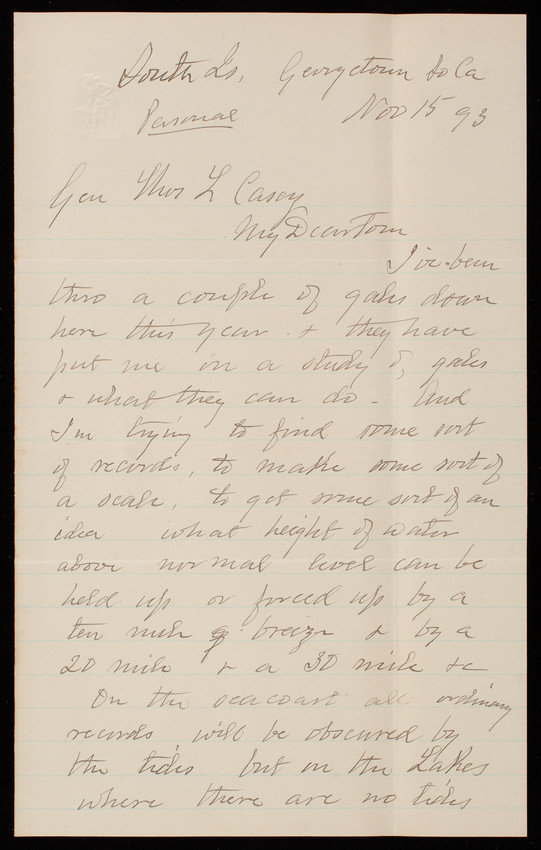 South Is, Georgetown So Ca
Personal Nov 15 93
Gen Thos L Casey
My Dear Tom
I've been
thro a couple of gales down
here this year & they have
put me in a study of gales
& what they can do - And
I'm trying to find some sort
of records, to make some sort of
a scale, to get some sort of an
idea what height of water
above normal level can be
held up or forced up by a
ten mile breeze & by a
20 mile & a 30 mile &c
On the seacoast all ordinary
records will be obscured by
the tides but on the Lakes
where there are no tides